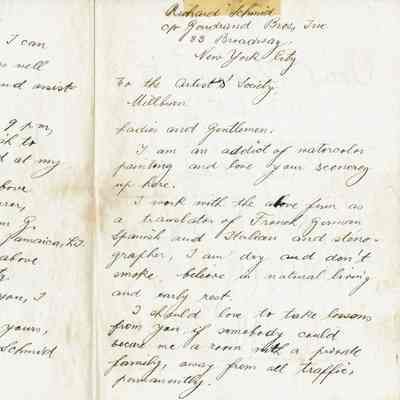 I can
well
and assist
9 p.m,
to
at my
above
G.
Jamaica, L.I.
above
I
yours,
Schmid
Richard Schmid
c/o Goudrand Bros, Inc
83 Broadway.
New York City
To the Artists' Society.
Millburn
Ladies and Gentlemen.
I am an addict of watercolor
painting and love your scenerey
up here.
I work with the above firm as
a translator of French, German
Spanish and Italian and steno-
grapher, I am dry and don't
smoke believe in natural living
and early rest.
I should love to take lessons
from you, if somebody could
secure me a room with a private
family, away from all traffic,
permanently.